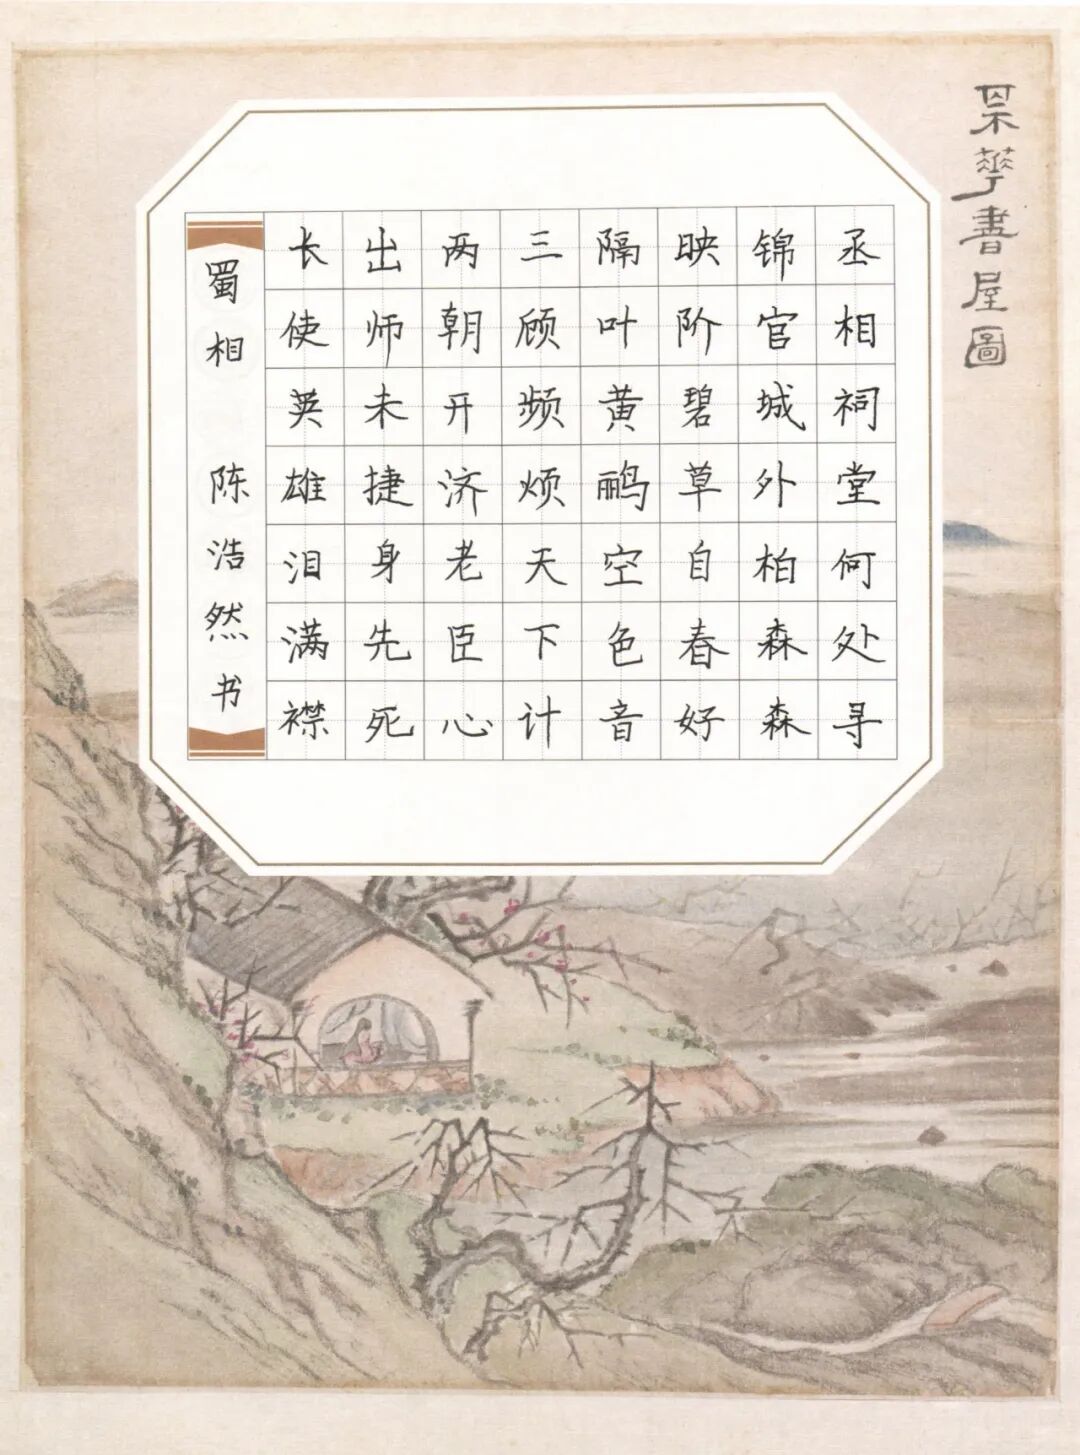 華書屋圖
丞相祠堂何处寻
锦官城外柏森森
映阶碧草自春好
隔叶黄鹂空色音
三顾频烦天下计
两朝开济老臣心
出师未捷身先死
长使英雄泪满襟
蜀相 陈浩然书